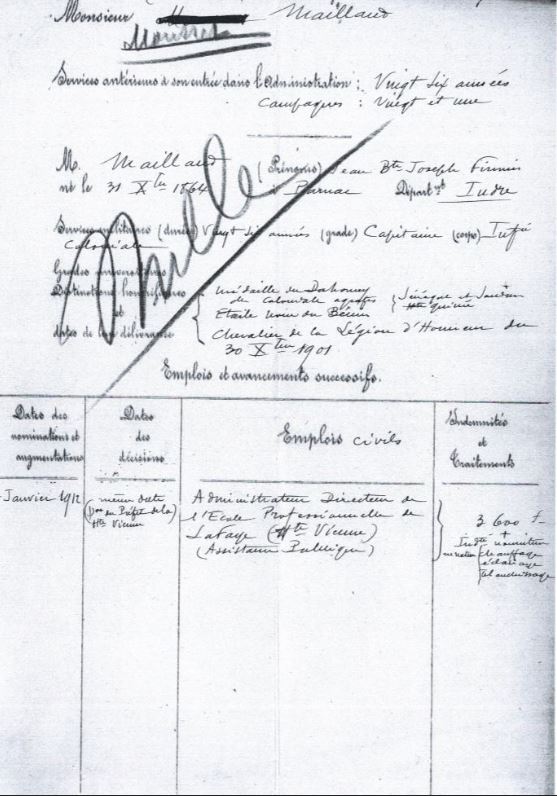 Monsieur Maillaud
Services antérieurs à son entrée dans l'Administration : Vingt six années
Campagnes : Vingt et une
M. Maillaud (Prénoms) Jean Bte Joseph Firmin
né le 31 Xbre 1864 à Parnac Départ.nt Indre
Services militaires (durée) Vingt six années (grade) Capitaine (corps) Infie
Coloniale
Grades universitaires
Distinctions honorifiques
et
dates de leur délivrance
Médaille du Dahomey
du Coloniale agrafes Sénégal et Soudan
Etoile noire du Bénin Guinée
Chevalier de la Légion d'Honneur du
30 Xbre 1901
Nulle
Emplois et avancements successifs.
Dates des nominations et augmentations
Dates des décisions
Emplois civils
Indemnités et Traitements
Janvier 1912
même date
(Don du Préfet de la
Hte Vienne)
Administrateur Directeur de
l'Ecole Professionnelle de
Lafaye (Hte Vienne)
(Assistance Publique)
3 600 f
+
chauffage
éclairage
et blanchissage